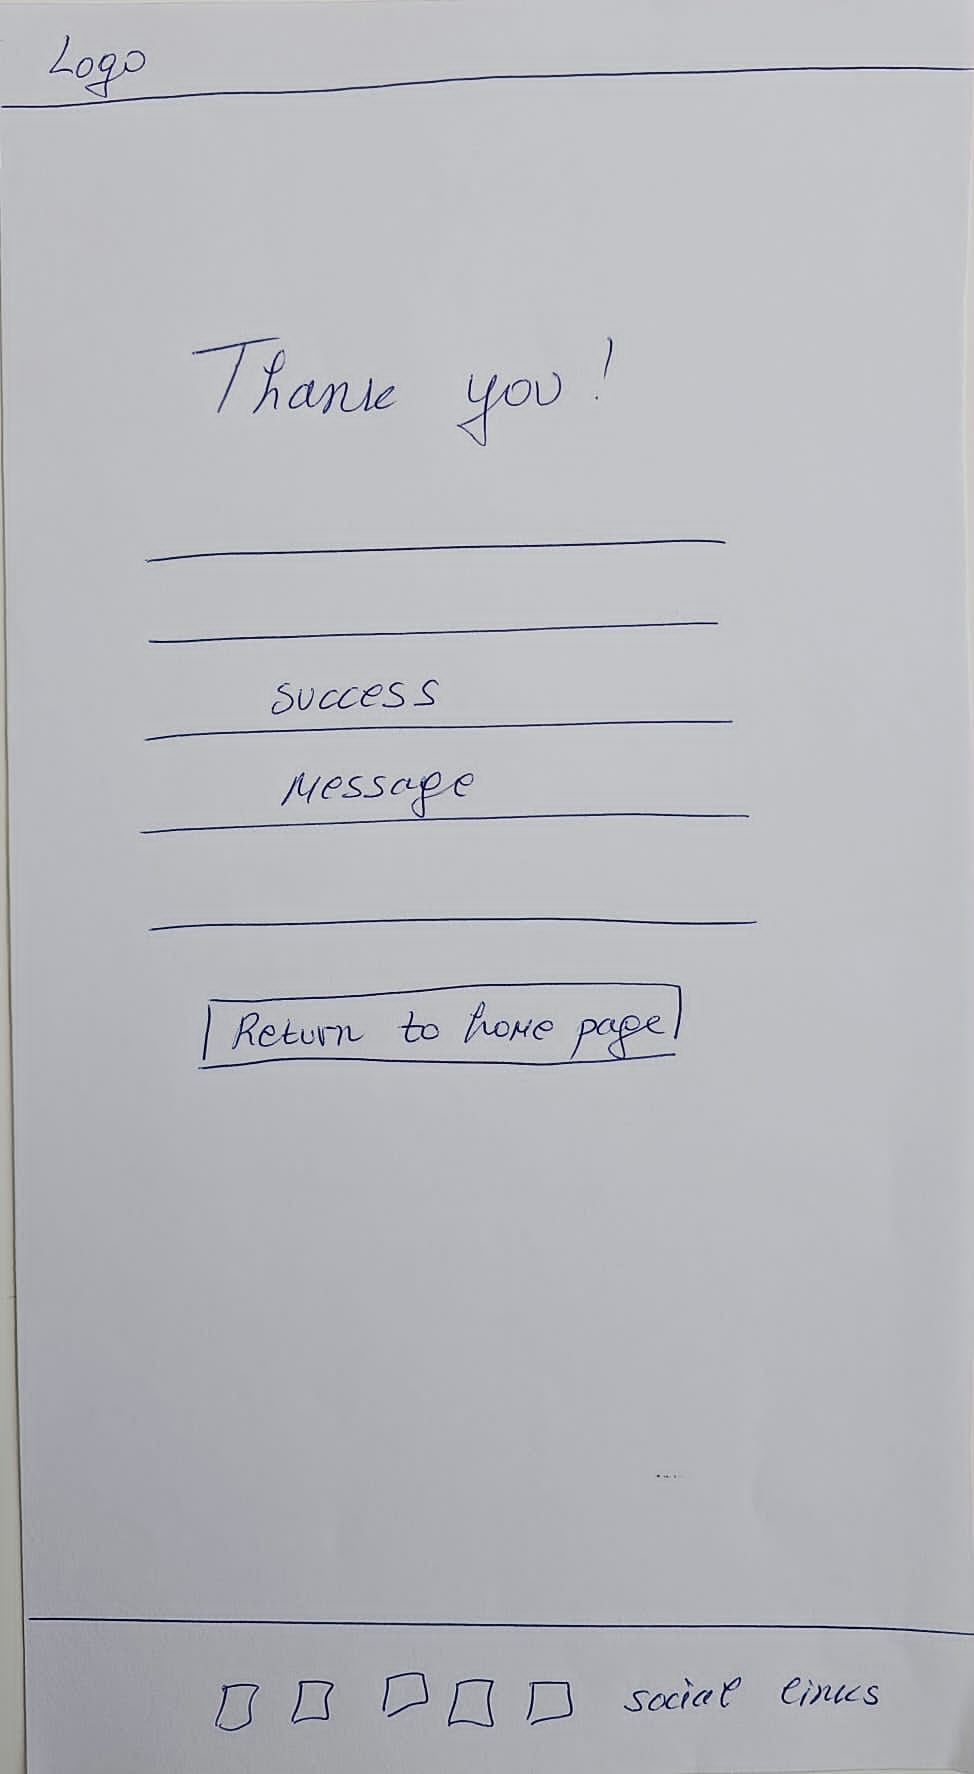 Logo
Thank you!
success
Message
Return to home page
social links